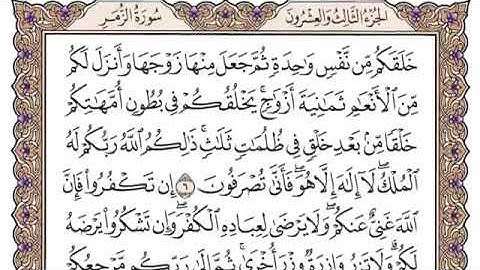 الجُزْءُ الثَّالِثُ وَالعِشْرُونَ سُورَةُ الزُّمَرِ
خَلَقَكُم مِّن نَّفْسٍ وَٰحِدَةٍ ثُمَّ جَعَلَ مِنْهَا زَوْجَهَا وَأَنزَلَ لَكُم
مِّنَ ٱلْأَنْعَٰمِ ثَمَٰنِيَةَ أَزْوَٰجٍ ۚ يَخْلُقُكُمْ فِى بُطُونِ أُمَّهَٰتِكُمْ
خَلْقًا مِّنۢ بَعْدِ خَلْقٍ فِى ظُلُمَٰتٍ ثَلَٰثٍ ۚ ذَٰلِكُمُ ٱللَّهُ رَبُّكُمْ لَهُ
ٱلْمُلْكُ ۖ لَآ إِلَٰهَ إِلَّا هُوَ ۖ فَأَنَّىٰ تُصْرَفُونَ ٦ إِن تَكْفُرُوا۟ فَإِنَّ
ٱللَّهَ غَنِىٌّ عَنكُمْ ۖ وَلَا يَرْضَىٰ لِعِبَادِهِ ٱلْكُفْرَ ۖ وَإِن تَشْكُرُوا۟ يَرْضَهُ
لَكُمْ ۗ وَلَا تَزِرُ وَازِرَةٌ وِزْرَ أُخْرَىٰ ۗ ثُمَّ إِلَىٰ رَبِّكُم مَّرْجِعُكُمْ